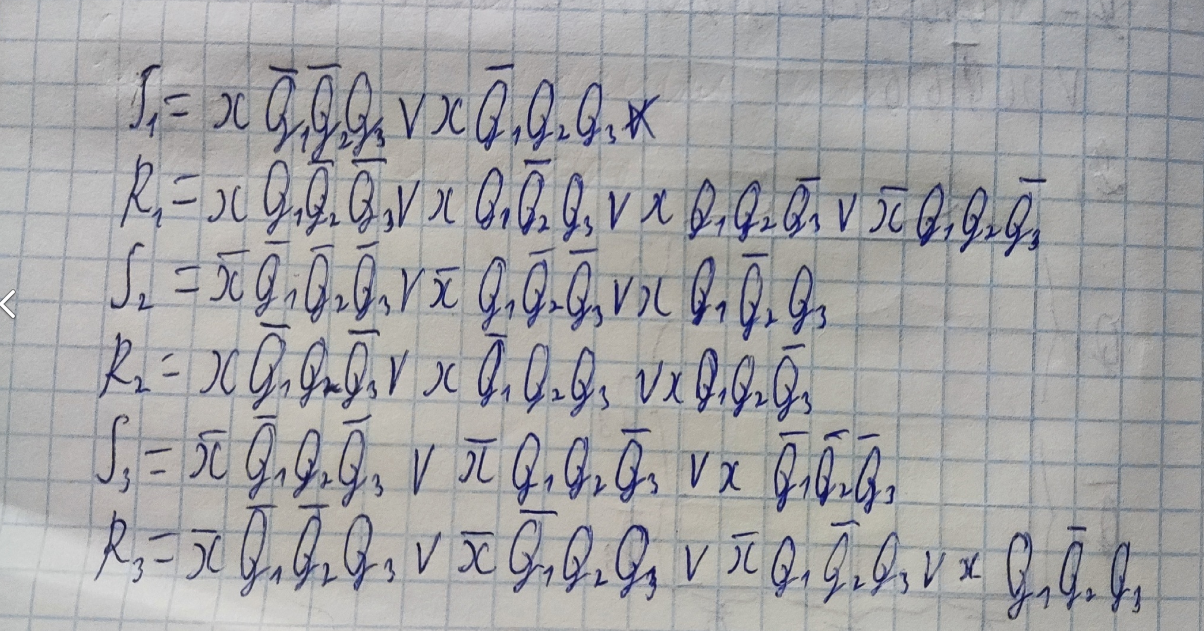 S₁ = x Q̅₁Q̅₂Q₃ ∨ x Q̅₁Q₂Q₃
R₁ = x Q₁Q̅₂Q̅₃ ∨ x Q₁Q̅₂Q₃ ∨ x Q₁Q₂Q̅₃ ∨ x̅ Q₁Q₂Q̅₃
S₂ = x̅ Q̅₁Q̅₂Q̅₃ ∨ x̅ Q₁Q̅₂Q̅₃ ∨ x Q₁Q̅₂Q₃
R₂ = x Q̅₁Q₂Q̅₃ ∨ x Q̅₁Q₂Q₃ ∨ x Q₁Q₂Q̅₃
S₃ = x̅ Q̅₁Q₂Q̅₃ ∨ x̅ Q₁Q₂Q̅₃ ∨ x Q̅₁Q̅₂Q̅₃
R₃ = x̅ Q̅₁Q̅₂Q₃ ∨ x̅ Q̅₁Q₂Q₃ ∨ x̅ Q₁Q̅₂Q₃ ∨ x Q₁Q̅₂Q₃